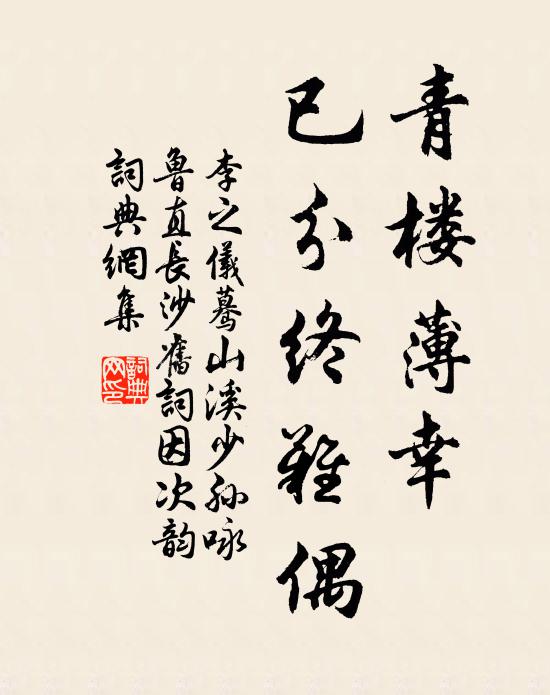 青楼薄幸
已分终难偶
李之儀驀山溪少孙咏
鲁直长沙舊詞因次韵
詞典網集
詞典网印